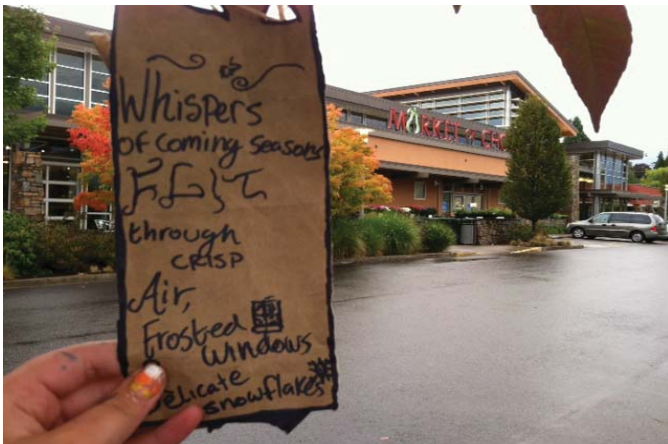 Whispers
of coming seasons
FLIT
through
CRISP
Air,
Frosted
windows
Delicate
snowflakes
MARKET OF